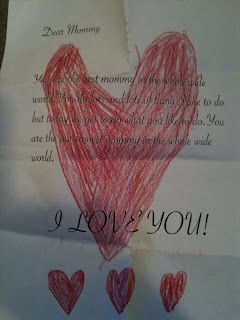 Dear Mommy
You are the best mommy in the whole wide
world. You do lots and lots of thing I like to do
but today we get to do what you like to do. You
are the awesomest mommy in the whole wide
world.
I LOVE YOU!